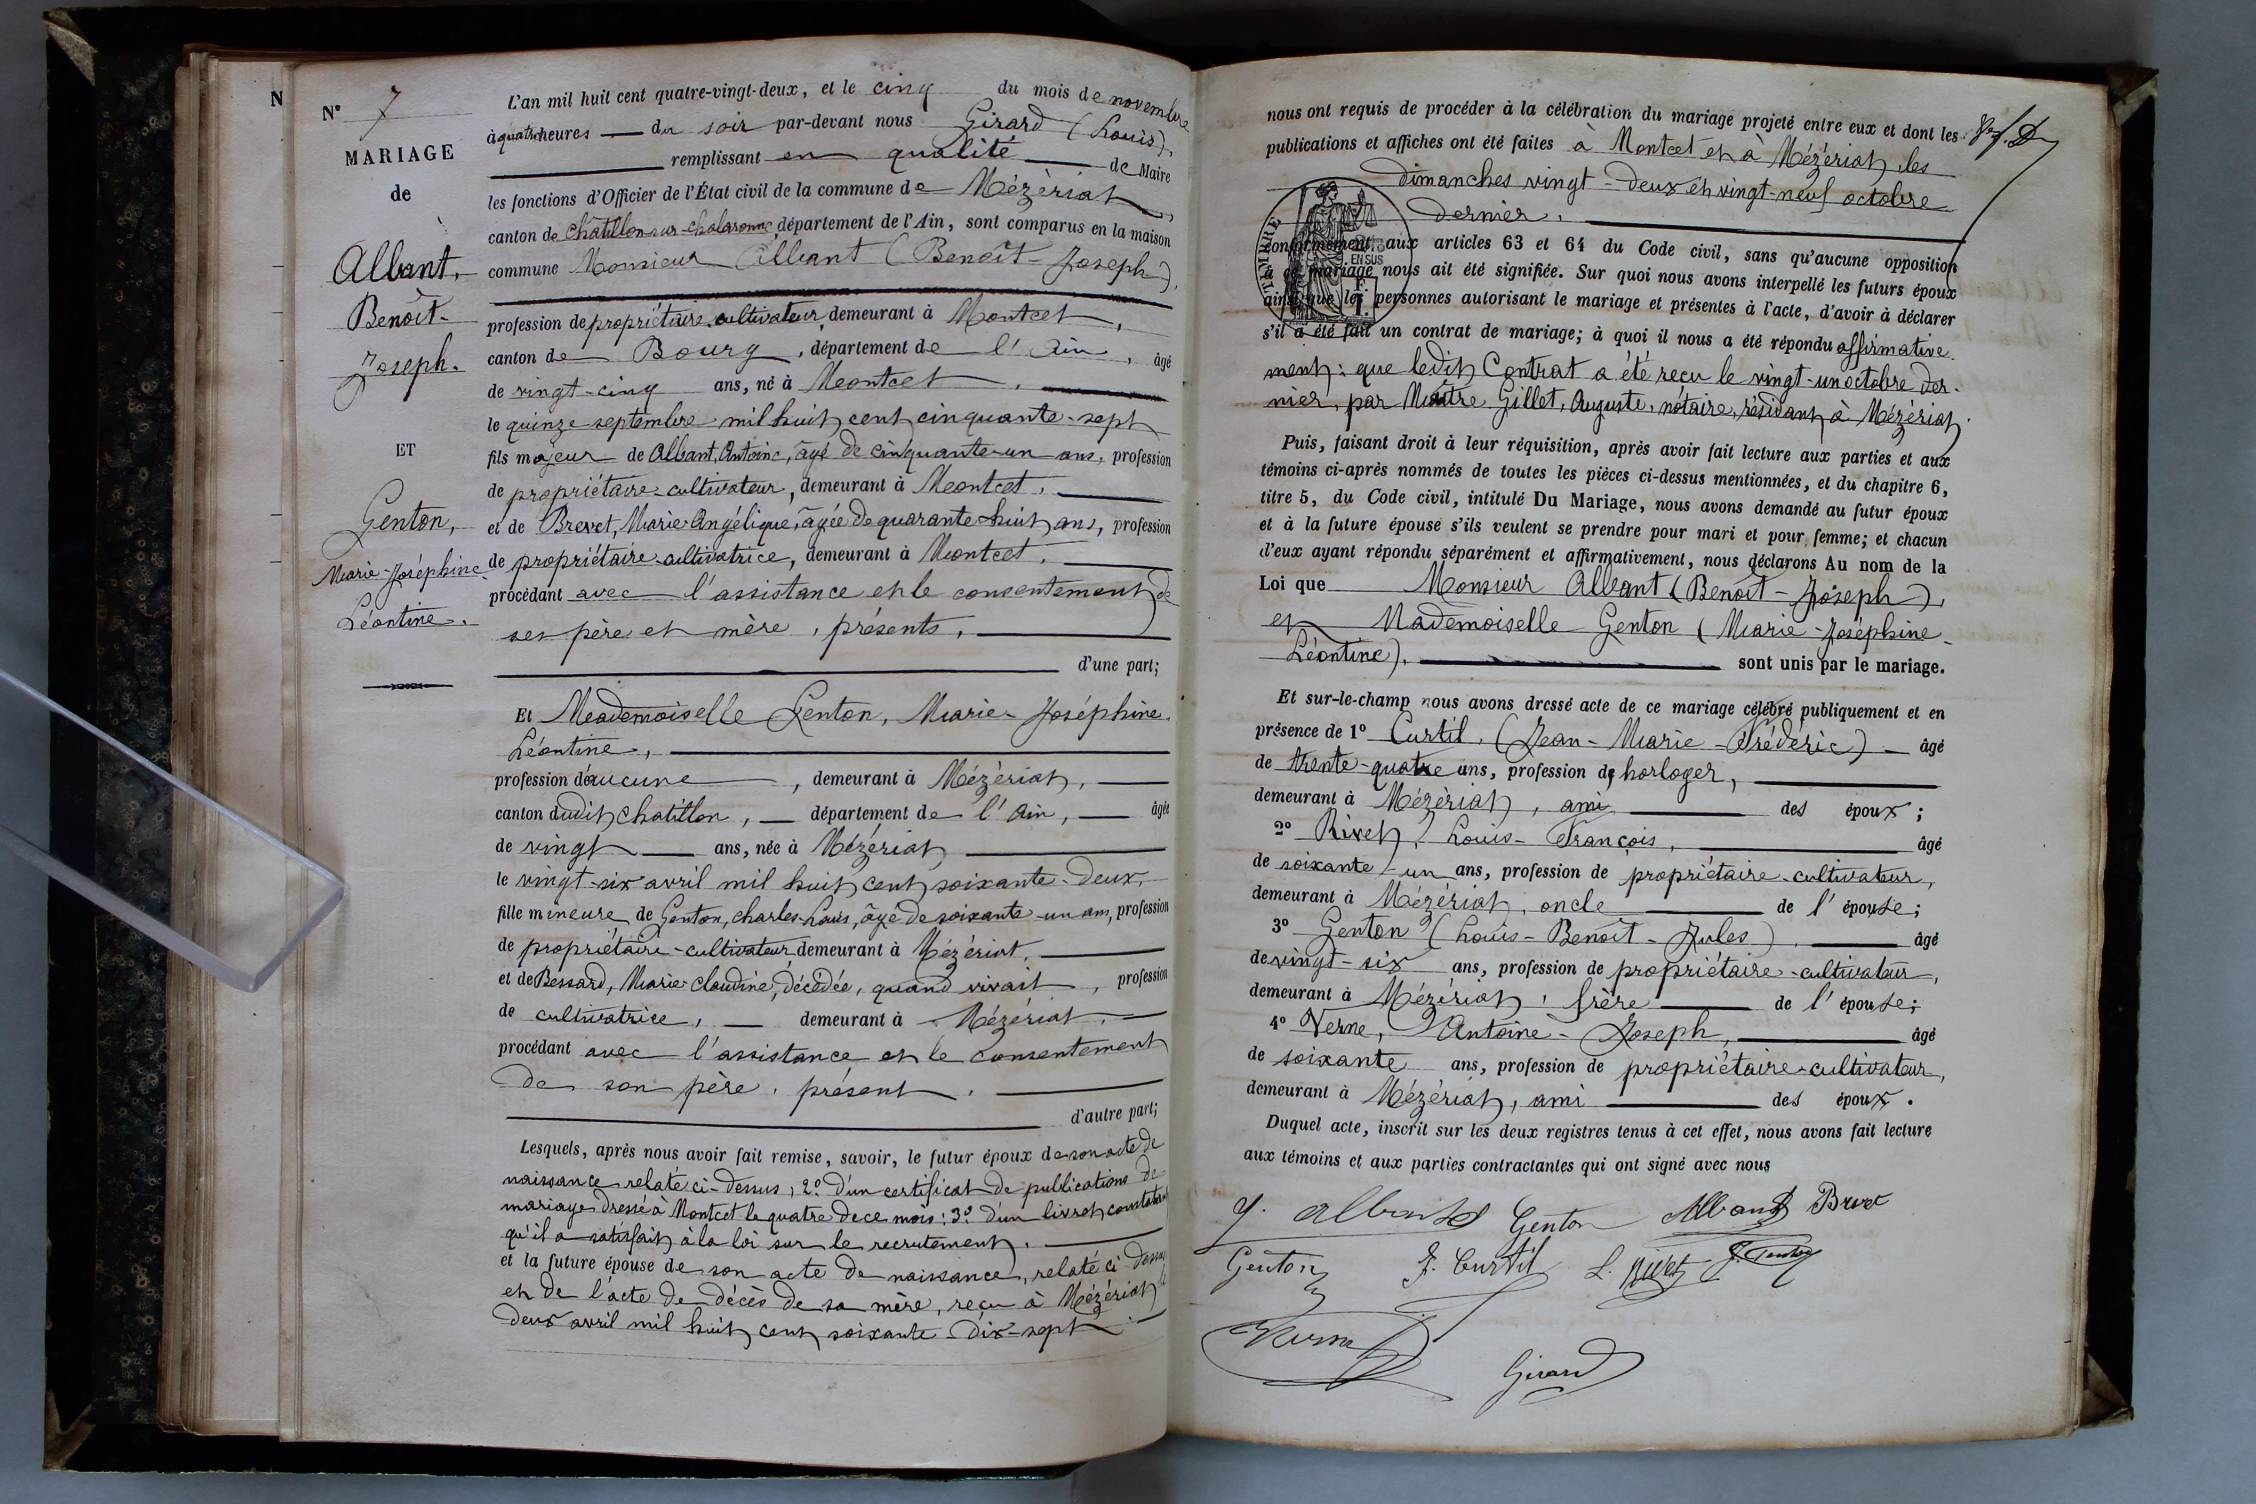 N
N° 7
MARIAGE
de
Albant,
Benoît-
Joseph.
ET
Genton,
Marie-Joséphine
Léontine.
L'an mil huit cent quatre-vingt-deux, et le cinq du mois de novembre
à quatre heures du soir par-devant nous Girard (Louis),
remplissant en qualité de Maire
les fonctions d'Officier de l'État civil de la commune de Mézériat,
canton de Châtillon-sur-Chalaronne, département de l'Ain, sont comparus en la maison
commune Monsieur Albant (Benoît-Joseph),
profession de propriétaire-cultivateur, demeurant à Montcet,
canton de Bourg, département de l'Ain, âgé
de vingt-cinq ans, né à Montcet,
le quinze septembre mil huit cent cinquante-sept
fils majeur de Albant, Antoine, âgé de cinquante-un ans, profession
de propriétaire-cultivateur, demeurant à Montcet,
et de Brevet, Marie-Angélique, âgée de quarante-huit ans, profession
de propriétaire-cultivatrice, demeurant à Montcet,
procédant avec l'assistance et le consentement de
ses père et mère, présents,
d'une part;
Et Mademoiselle Genton, Marie-Joséphine
Léontine,
profession d'aucune, demeurant à Mézériat,
canton dudit Chatillon, département de l'Ain, âgée
de vingt ans, née à Mézériat
le vingt-six avril mil huit cent soixante-deux,
fille mineure de Genton, Charles-Louis, âgé de soixante-un ans, profession
de propriétaire-cultivateur demeurant à Mézériat,
et de Bessard, Marie-Claudine, décédée, quand vivait, profession
de cultivatrice, demeurant à Mézériat,
procédant avec l'assistance et le consentement
de son père, présent,
d'autre part;
Lesquels, après nous avoir fait remise, savoir, le futur époux de son acte de
naissance relaté ci-dessus; 2° d'un certificat de publications de
mariage dressé à Montcet le quatre de ce mois; 3° d'un livret constatant
qu'il a satisfait à la loi sur le recrutement,
et la future épouse de son acte de naissance, relaté ci-dessus
et de l'acte de décès de sa mère, reçu à Mézériat
deux avril mil huit cent soixante-dix-sept.
nous ont requis de procéder à la célébration du mariage projeté entre eux et dont les
publications et affiches ont été faites à Montcet et à Mézériat, les
dimanches vingt-deux et vingt-neuf octobre
dernier,
TIMBRE
EN SUS
conformément aux articles 63 et 64 du Code civil, sans qu'aucune opposition
à ce mariage nous ait été signifiée. Sur quoi nous avons interpellé les futurs époux
ainsi que les personnes autorisant le mariage et présentes à l'acte, d'avoir à déclarer
s'il a été fait un contrat de mariage; à quoi il nous a été répondu affirmative-
ment: que ledit Contrat a été reçu le vingt-un octobre der-
nier, par Maître Gillet, Auguste, notaire, résidant à Mézériat.
Puis, faisant droit à leur réquisition, après avoir fait lecture aux parties et aux
témoins ci-après nommés de toutes les pièces ci-dessus mentionnées, et du chapitre 6,
titre 5, du Code civil, intitulé Du Mariage, nous avons demandé au futur époux
et à la future épouse s'ils veulent se prendre pour mari et pour femme; et chacun
d'eux ayant répondu séparément et affirmativement, nous déclarons Au nom de la
Loi que Monsieur Albant (Benoît-Joseph),
et Mademoiselle Genton (Marie-Joséphine-
Léontine), sont unis par le mariage.
Et sur-le-champ nous avons dressé acte de ce mariage célébré publiquement et en
présence de 1° Curtil, (Jean-Marie-Frédéric) âgé
de trente-quatre ans, profession de horloger,
demeurant à Mézériat, ami des époux;
2° Rivet, Louis-François, âgé
de soixante-un ans, profession de propriétaire-cultivateur,
demeurant à Mézériat, oncle de l'épouse;
3° Genton (Louis-Benoît-Jules), âgé
de vingt-six ans, profession de propriétaire-cultivateur,
demeurant à Mézériat, frère de l'épouse;
4° Verne, Antoine-Joseph, âgé
de soixante ans, profession de propriétaire-cultivateur,
demeurant à Mézériat, ami des époux.
Duquel acte, inscrit sur les deux registres tenus à cet effet, nous avons fait lecture
aux témoins et aux parties contractantes qui ont signé avec nous
J. Albant Genton Albant Brevet
Genton F. Curtil L. Rivet J. Genton
Verne
Girard